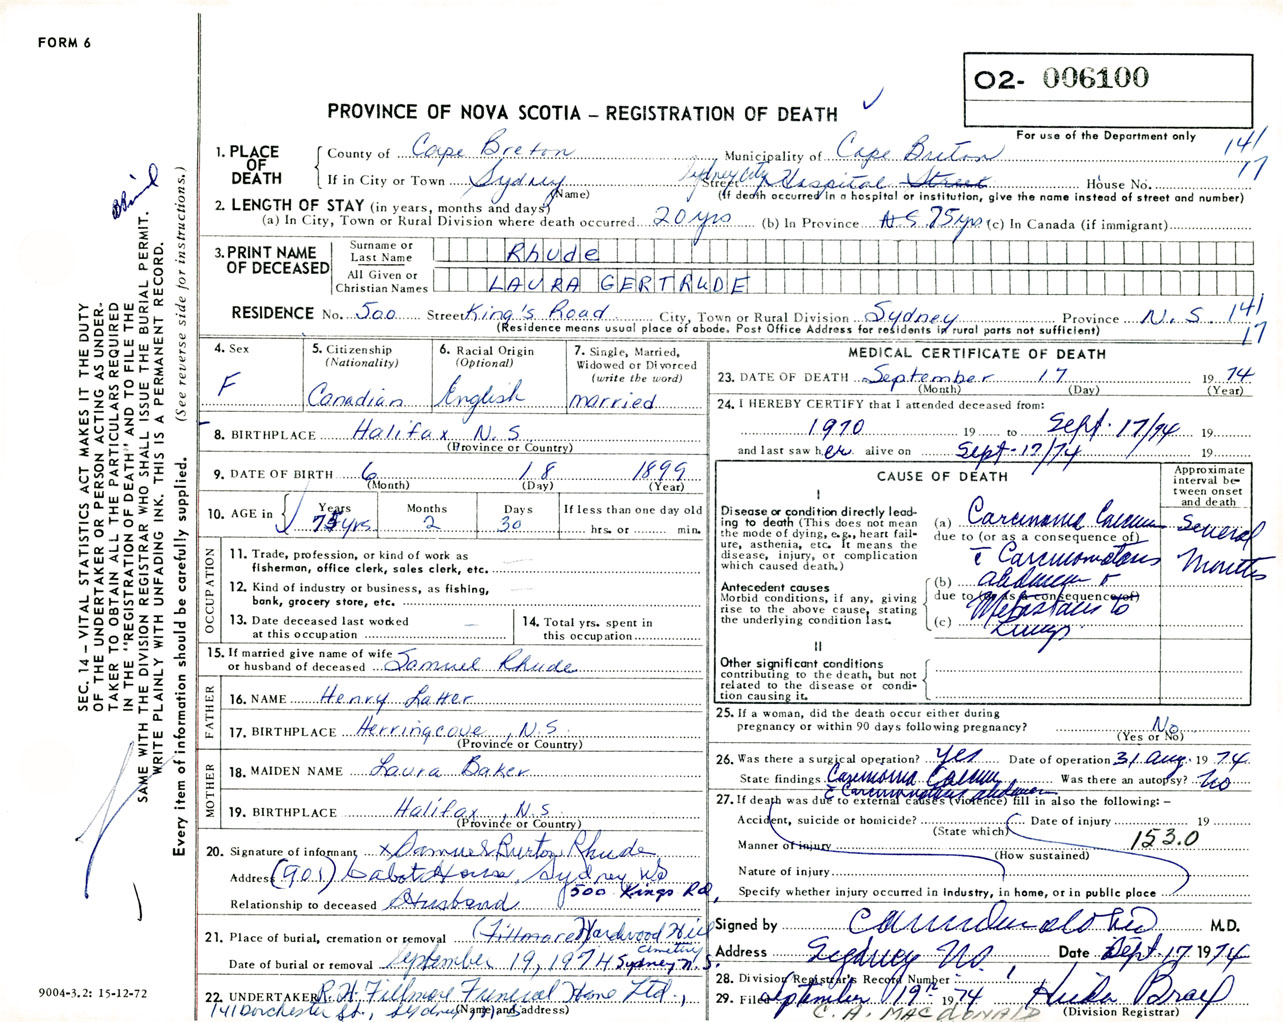 FORM 6
O2- 006100
For use of the Department only
PROVINCE OF NOVA SCOTIA – REGISTRATION OF DEATH ✓
141
17
1. PLACE OF DEATH
County of Cape Breton Municipality of Cape Breton
If in City or Town Sydney (Name) Street Sydney City Hospital Street House No.
(If death occurred in a hospital or institution, give the name instead of street and number)
2. LENGTH OF STAY (in years, months and days)
(a) In City, Town or Rural Division where death occurred 20 yrs (b) In Province N S 75 yrs (c) In Canada (if immigrant)
3. PRINT NAME OF DECEASED
Surname or Last Name Rhude
All Given or Christian Names LAURA GERTRUDE
RESIDENCE No. 500 Street King's Road City, Town or Rural Division Sydney Province N.S. 141
17
(Residence means usual place of abode. Post Office Address for residents in rural parts not sufficient)
4. Sex
F
5. Citizenship
(Nationality)
Canadian
6. Racial Origin
(Optional)
English
7. Single, Married,
Widowed or Divorced
(write the word)
married
8. BIRTHPLACE Halifax N.S.
(Province or Country)
9. DATE OF BIRTH 6 18 1899
(Month) (Day) (Year)
10. AGE in
Years Months Days If less than one day old
75 yrs 2 30 hrs. or min.
OCCUPATION
11. Trade, profession, or kind of work as
fisherman, office clerk, sales clerk, etc.
12. Kind of industry or business, as fishing,
bank, grocery store, etc.
13. Date deceased last worked
at this occupation
14. Total yrs. spent in
this occupation
15. If married give name of wife
or husband of deceased Samuel Rhude
FATHER
16. NAME Henry Latter
17. BIRTHPLACE Herringcove, N.S.
(Province or Country)
MOTHER
18. MAIDEN NAME Laura Baker
19. BIRTHPLACE Halifax, N.S.
(Province or Country)
20. Signature of informant x Samuel Burton Rhude
Address (901) Cabot House, Sydney NS
500 Kings Rd,
Relationship to deceased Husband
21. Place of burial, cremation or removal (Fillmore) Hardwood Hill
Cemetery
Date of burial or removal September 19, 1974 Sydney N.S.
22. UNDERTAKER R.H. Fillmore Funeral Home Ltd.,
(Name and address)
141 Dorchester St., Sydney, N.S.
MEDICAL CERTIFICATE OF DEATH
23. DATE OF DEATH September 17 1974
(Month) (Day) (Year)
24. I HEREBY CERTIFY that I attended deceased from:
1970 19 to Sept. 17/74 19
and last saw her alive on Sept. 17/74 19
CAUSE OF DEATH
Approximate interval between onset and death
I
Disease or condition directly leading to death (This does not mean the mode of dying, e.g., heart failure, asthenia, etc. It means the disease, injury, or complication which caused death.)
(a) Carcinoma Caecum
Several
Months
due to (or as a consequence of)
c̄ Carcinomatosis
(b) abdomen &
due to (or as a consequence of)
Metastasis to
(c) Lungs
Antecedent causes
Morbid conditions, if any, giving rise to the above cause, stating the underlying condition last.
II
Other significant conditions
contributing to the death, but not related to the disease or condition causing it.
25. If a woman, did the death occur either during
pregnancy or within 90 days following pregnancy? No
(Yes or No)
26. Was there a surgical operation? yes Date of operation 31 Aug. 1974
State findings Carcinoma Caecum Was there an autopsy? No
c̄ Carcinomatosis abdomen
27. If death was due to external causes (violence) fill in also the following: –
Accident, suicide or homicide? Date of injury 19
(State which)
153.0
Manner of injury
(How sustained)
Nature of injury
Specify whether injury occurred in industry, in home, or in public place
Signed by M.D.
Address Sydney NS. Date Sept. 17 1974
28. Division Registrar's Record Number
29. Filed September 19th 1974
(Division Registrar)
C. A. MACDONALD
SEC. 14 – VITAL STATISTICS ACT MAKES IT THE DUTY
OF THE UNDERTAKER OR PERSON ACTING AS UNDER-
TAKER TO OBTAIN ALL THE PARTICULARS REQUIRED
IN THE "REGISTRATION OF DEATH" AND TO FILE THE
SAME WITH THE DIVISION REGISTRAR WHO SHALL ISSUE THE BURIAL PERMIT.
WRITE PLAINLY WITH UNFADING INK. THIS IS A PERMANENT RECORD.
Every item of information should be carefully supplied. (See reverse side for instructions.)
9004-3.2: 15-12-72